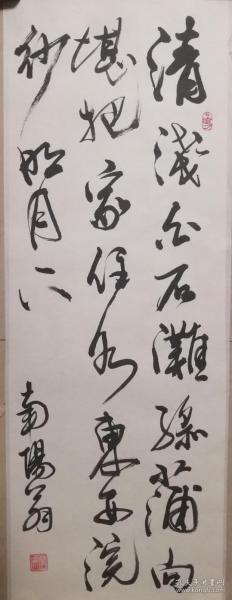 清淺白石灘綠蒲向
堪把家住水東西浣
紗明月下
南陽翁